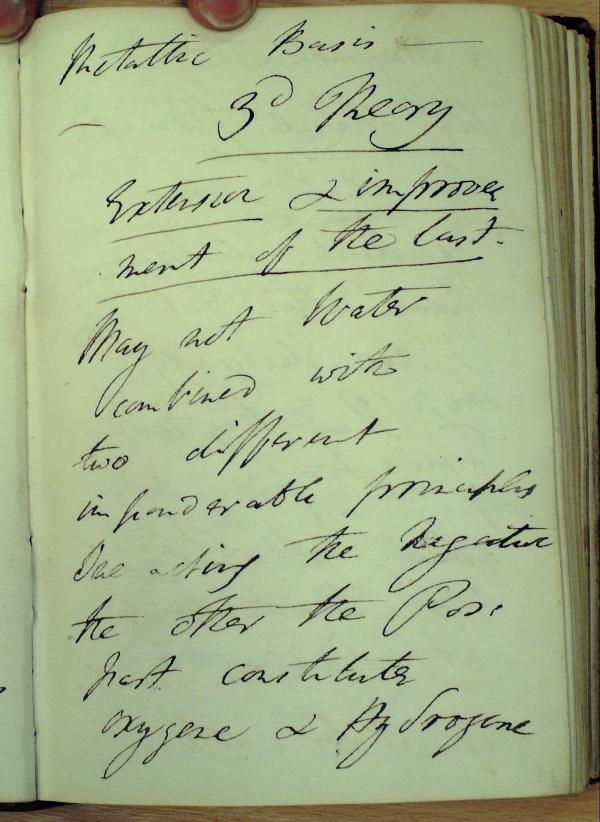 Metallic Basis —
— 3d Theory
Extension & improve
ment of the last.
May not Water
combined with
two different
imponderable principles
One acting the Negative
the other the Pos.
part constitute
oxygene & Hydrogene